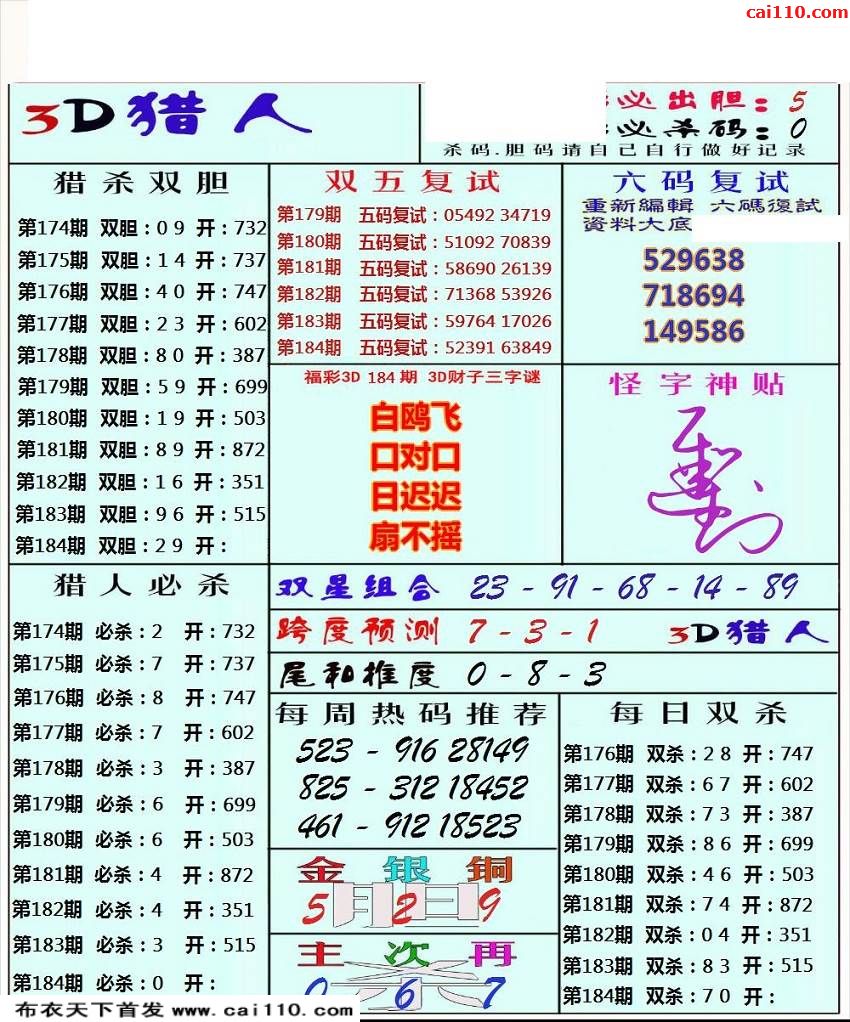 cai110.com
3D猎人
必出胆：5
必杀码：0
杀码.胆码请自己自行做好记录
猎杀双胆
第174期 双胆：09 开：732
第175期 双胆：14 开：737
第176期 双胆：40 开：747
第177期 双胆：23 开：602
第178期 双胆：80 开：387
第179期 双胆：59 开：699
第180期 双胆：19 开：503
第181期 双胆：89 开：872
第182期 双胆：16 开：351
第183期 双胆：96 开：515
第184期 双胆：29 开：
双五复试
第179期 五码复试：05492 34719
第180期 五码复试：51092 70839
第181期 五码复试：58690 26139
第182期 五码复试：71368 53926
第183期 五码复试：59764 17026
第184期 五码复试：52391 63849
六码复试
重新編輯 六碼復試
資料大底
529638
718694
149586
福彩3D 184期 3D财子三字谜
白鸥飞
口对口
日迟迟
扇不摇
怪字神贴
猎人必杀
第174期 必杀：2 开：732
第175期 必杀：7 开：737
第176期 必杀：8 开：747
第177期 必杀：7 开：602
第178期 必杀：3 开：387
第179期 必杀：6 开：699
第180期 必杀：6 开：503
第181期 必杀：4 开：872
第182期 必杀：4 开：351
第183期 必杀：3 开：515
第184期 必杀：0 开：
双星组合 23-91-68-14-89
跨度预测 7-3-1 3D猎人
尾和推度 0-8-3
每周热码推荐
523-916 28149
825-312 18452
461-912 18523
金银铜
5月2日9
主次再
0杀67
每日双杀
第176期 双杀：28 开：747
第177期 双杀：67 开：602
第178期 双杀：73 开：387
第179期 双杀：86 开：699
第180期 双杀：46 开：503
第181期 双杀：74 开：872
第182期 双杀：04 开：351
第183期 双杀：83 开：515
第184期 双杀：70 开：
布衣天下首发 www.cai110.com